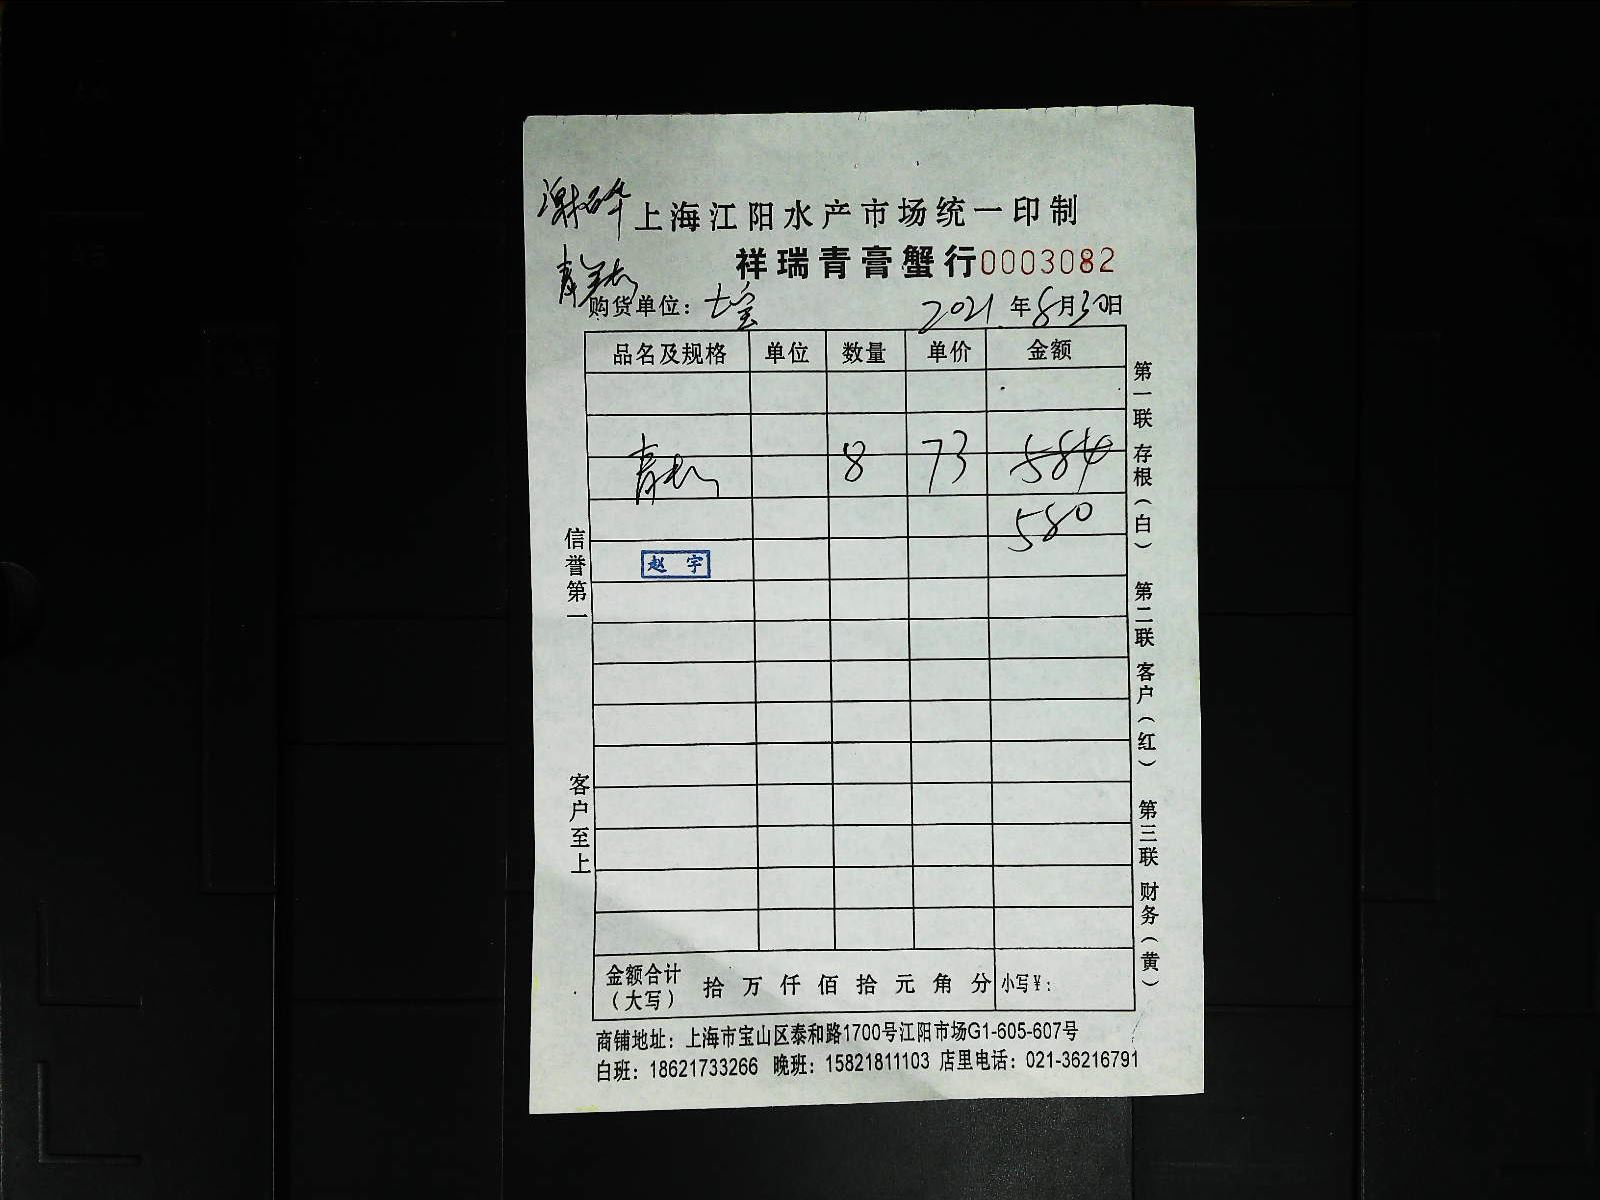 上海江阳水产市场统一印制
祥瑞青膏蟹行 0003082
购货单位：七宝 2021 年 8 月 30 日
品名及规格 单位 数量 单价 金额
8 73 584
580
赵宇
信誉第一
客户至上
第一联 存根（白） 第二联 客户（红） 第三联 财务（黄）
金额合计（大写） 拾 万 仟 佰 拾 元 角 分 小写￥：
商铺地址：上海市宝山区泰和路1700号江阳市场G1-605-607号
白班：18621733266 晚班：15821811103 店里电话：021-36216791